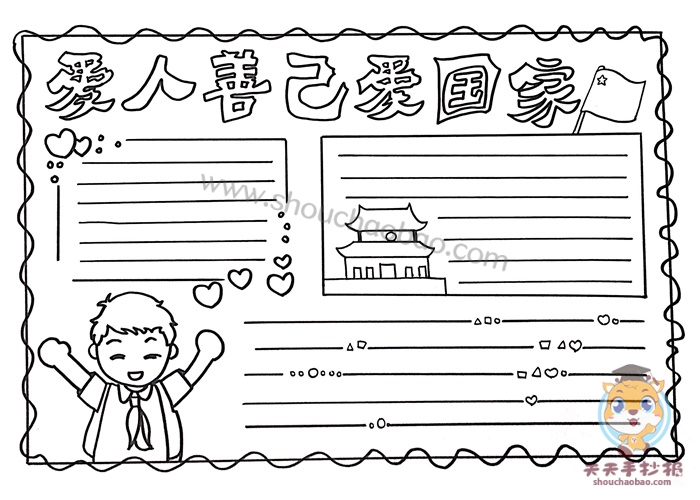 爱人善己爱国家
www.shouchaobao.com
天天手抄报
shouchaobao.com